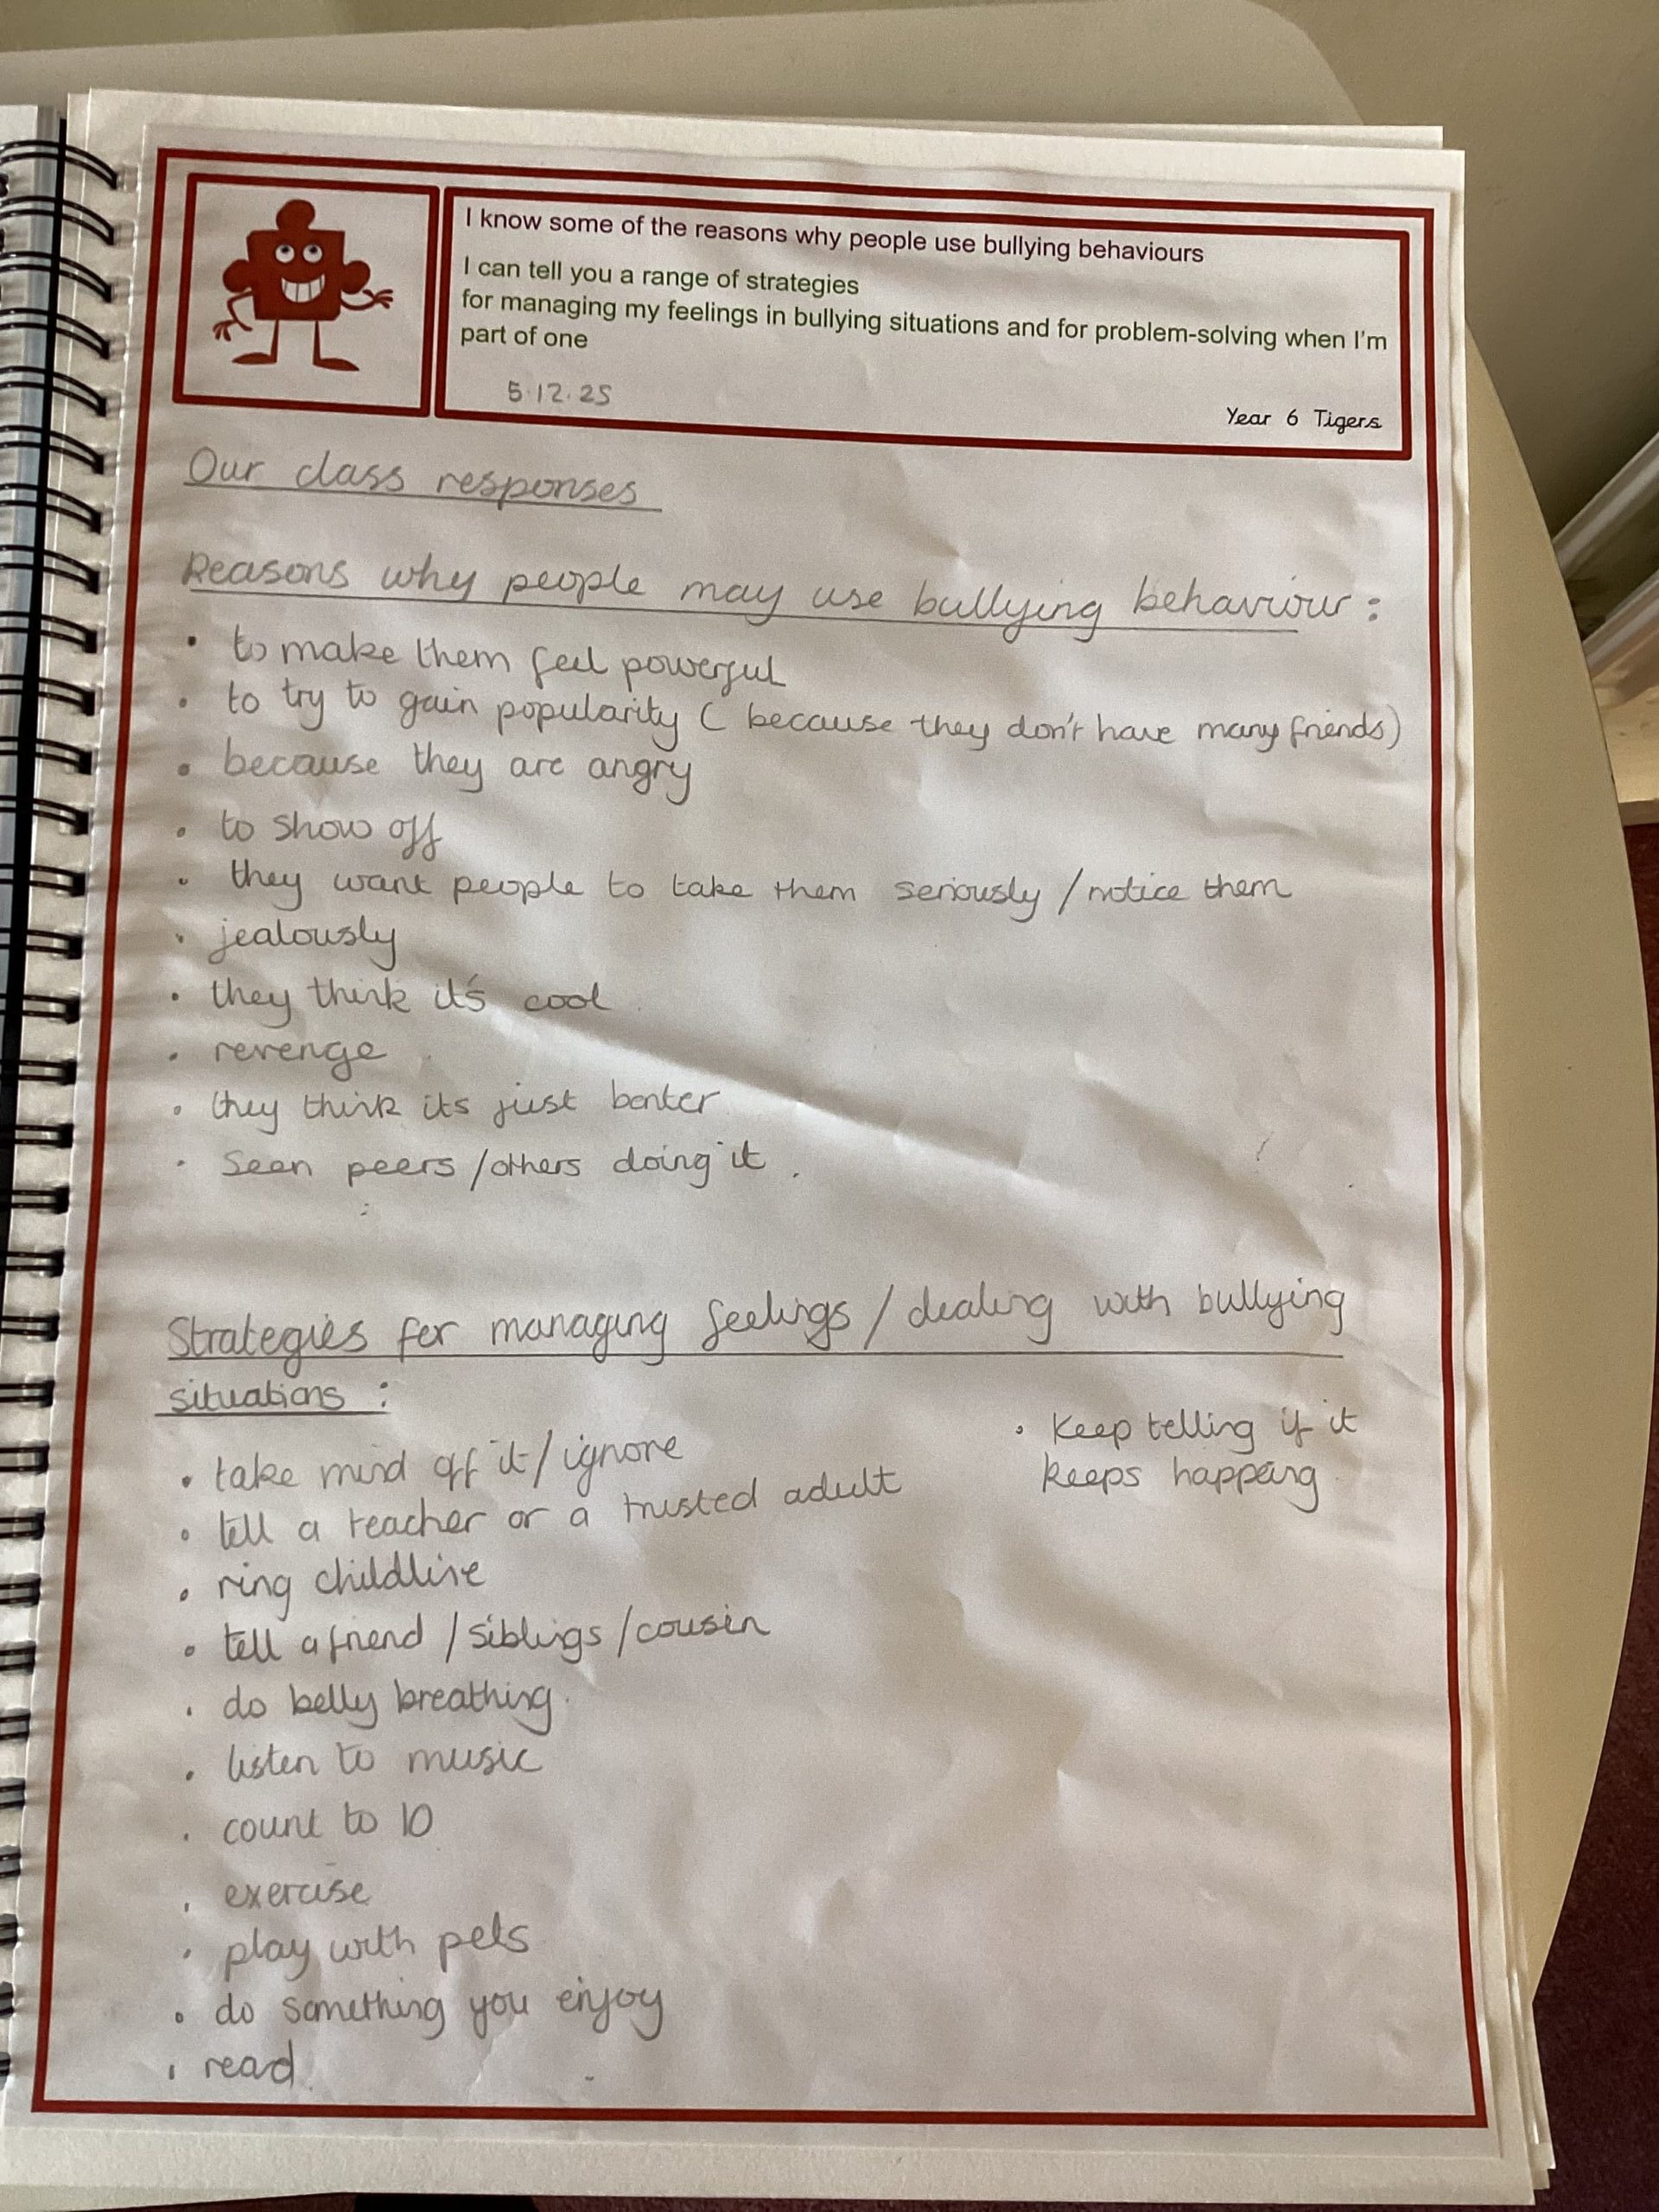 I know some of the reasons why people use bullying behaviours
I can tell you a range of strategies
for managing my feelings in bullying situations and for problem-solving when I'm
part of one
5.12.25
Year 6 Tigers
Our class responses
Reasons why people may use bullying behaviour :
• to make them feel powerful
• to try to gain popularity ( because they don't have many friends)
• because they are angry
• to show off
• they want people to take them seriously / notice them
• jealously
• they think it's cool
• revenge
• they think its just banter
• Seen peers / others doing it .
Strategies for managing feelings / dealing with bullying
situations :
• take mind off it / ignore
• tell a teacher or a trusted adult
• ring childline
• tell a friend / siblings / cousin
• do belly breathing.
• listen to music
• count to 10
• exercise
• play with pets
• do something you enjoy
• read
• Keep telling if it
keeps happening